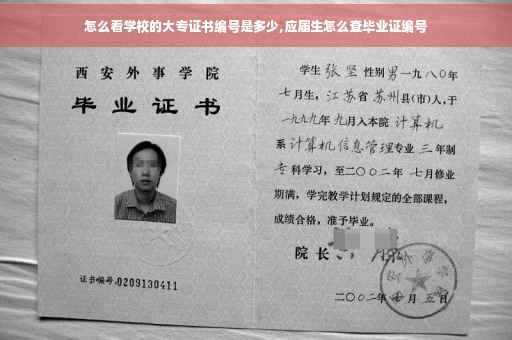 怎么看学校的大专证书编号是多少,应届生怎么查毕业证编号
西安外事学院
毕业证书
证书编号:0209130411
学生 张坚 性别 男 一九八〇年
七月生, 江苏省 苏州县(市)人,于
一九九九年 九月入本院 计算机
系 计算机信息管理专业 三 年制
专 科学习, 至二〇〇二年 七月修业
期满, 学完教学计划规定的全部课程,
成绩合格, 准予毕业。
院长
二〇〇二年 七月 五日